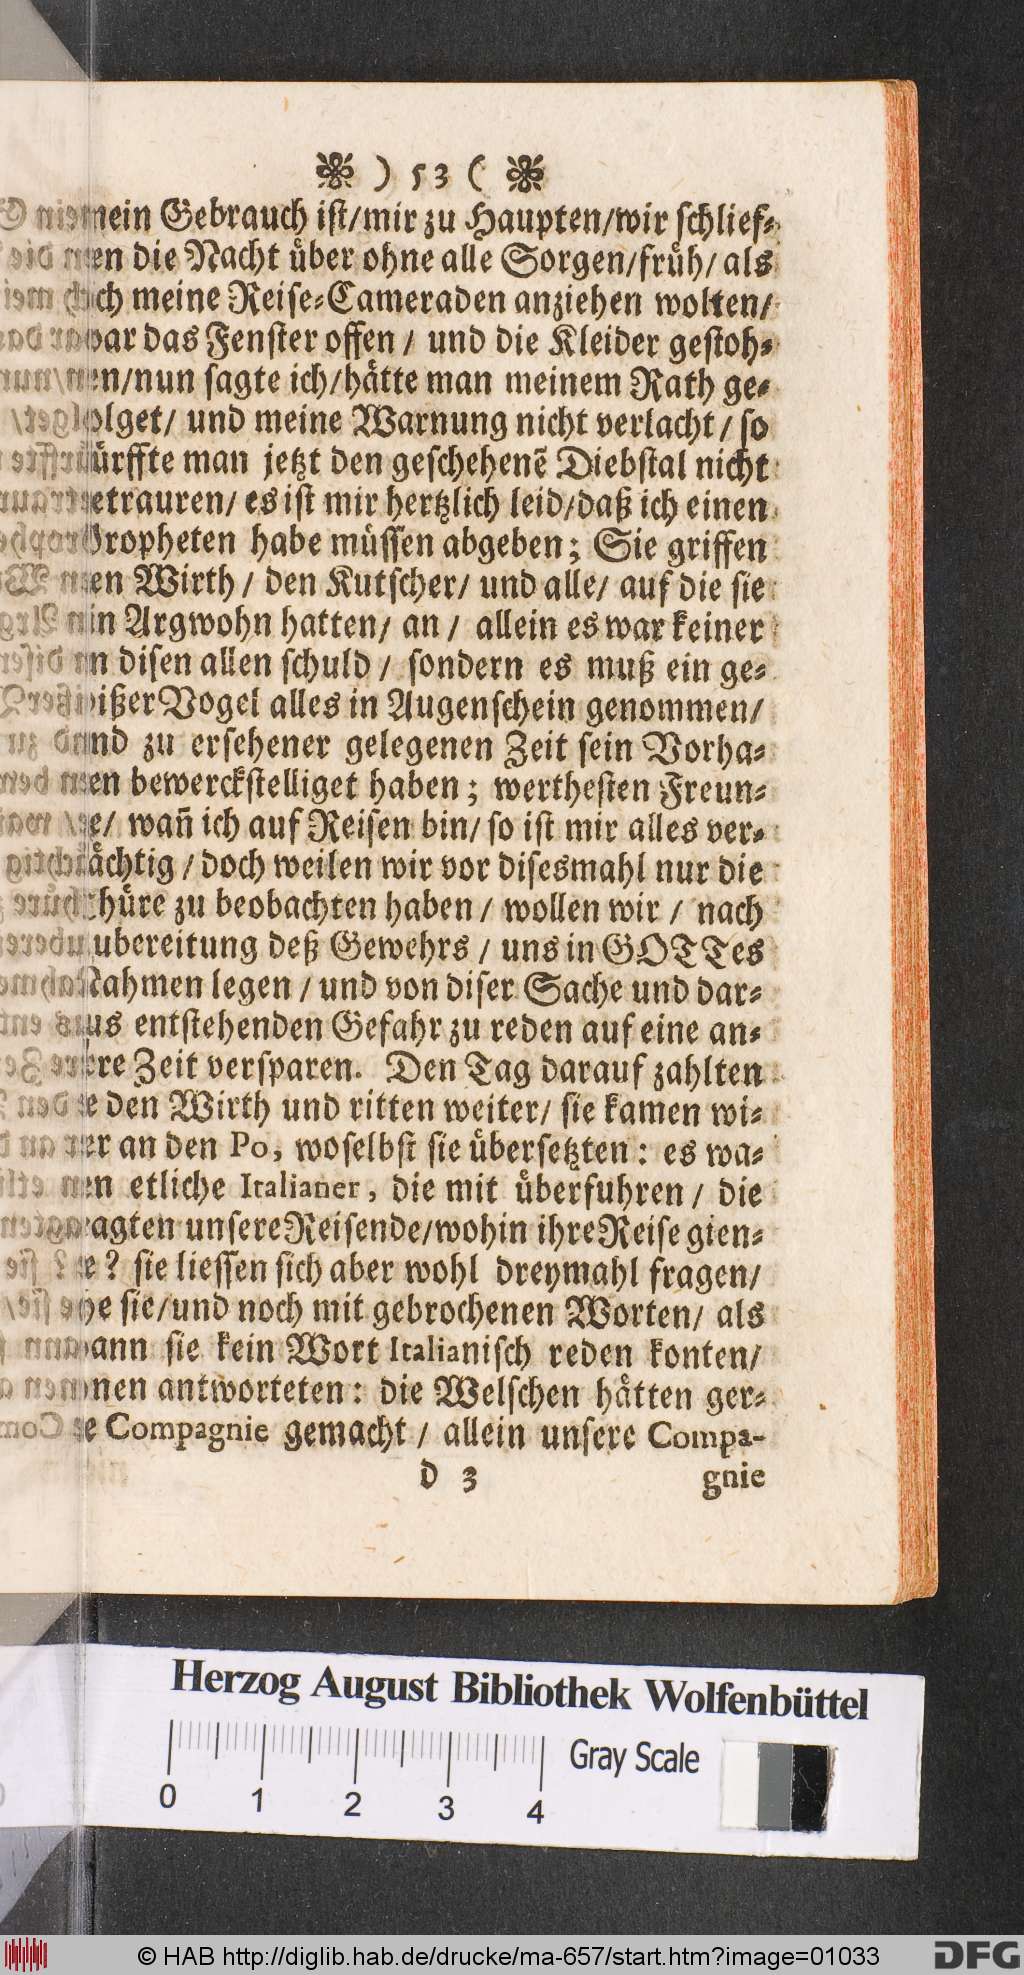 ) 53 (
mein Gebrauch ist/mir zu Haupten/wir schlief-
en die Nacht über ohne alle Sorgen/früh/ als
ich meine Reise-Cameraden anziehen wolten/
war das Fenster offen/ und die Kleider gestoh-
en/nun sagte ich/hätte man meinem Rath ge-
olget/ und meine Warnung nicht verlacht/ so
ürffte man jetzt den geschehenẽ Diebstal nicht
etrauren/ es ist mir hertzlich leid/daß ich einen
Propheten habe müssen abgeben; Sie griffen
en Wirth/ den Kutscher/ und alle/ auf die sie
in Argwohn hatten/ an/ allein es war keiner
n disen allen schuld/ sondern es muß ein ge-
wißer Vogel alles in Augenschein genommen/
und zu ersehener gelegenen Zeit sein Vorha-
en bewerckstelliget haben; werthesten Freun-
e/ wañ ich auf Reisen bin/ so ist mir alles ver-
ächtig/ doch weilen wir vor disesmahl nur die
Thüre zu beobachten haben/ wollen wir/ nach
ubereitung deß Gewehrs/ uns in GOTTes
Nahmen legen/ und von diser Sache und dar-
us entstehenden Gefahr zu reden auf eine an-
re Zeit versparen. Den Tag darauf zahlten
e den Wirth und ritten weiter/ sie kamen wi-
er an den Po, woselbst sie übersetzten: es wa-
en etliche Italianer, die mit überfuhren/ die
ragten unsere Reisende/wohin ihre Reise gien-
e? sie liessen sich aber wohl dreymahl fragen/
he sie/und noch mit gebrochenen Worten/ als
wann sie kein Wort Italianisch reden konten/
nen antworteten: die Welschen hätten ger-
e Compagnie gemacht/ allein unsere Compa-
d 3 gnie
Herzog August Bibliothek Wolfenbüttel
Gray Scale
0 1 2 3 4
© HAB http://diglib.hab.de/drucke/ma-657/start.htm?image=01033
DFG